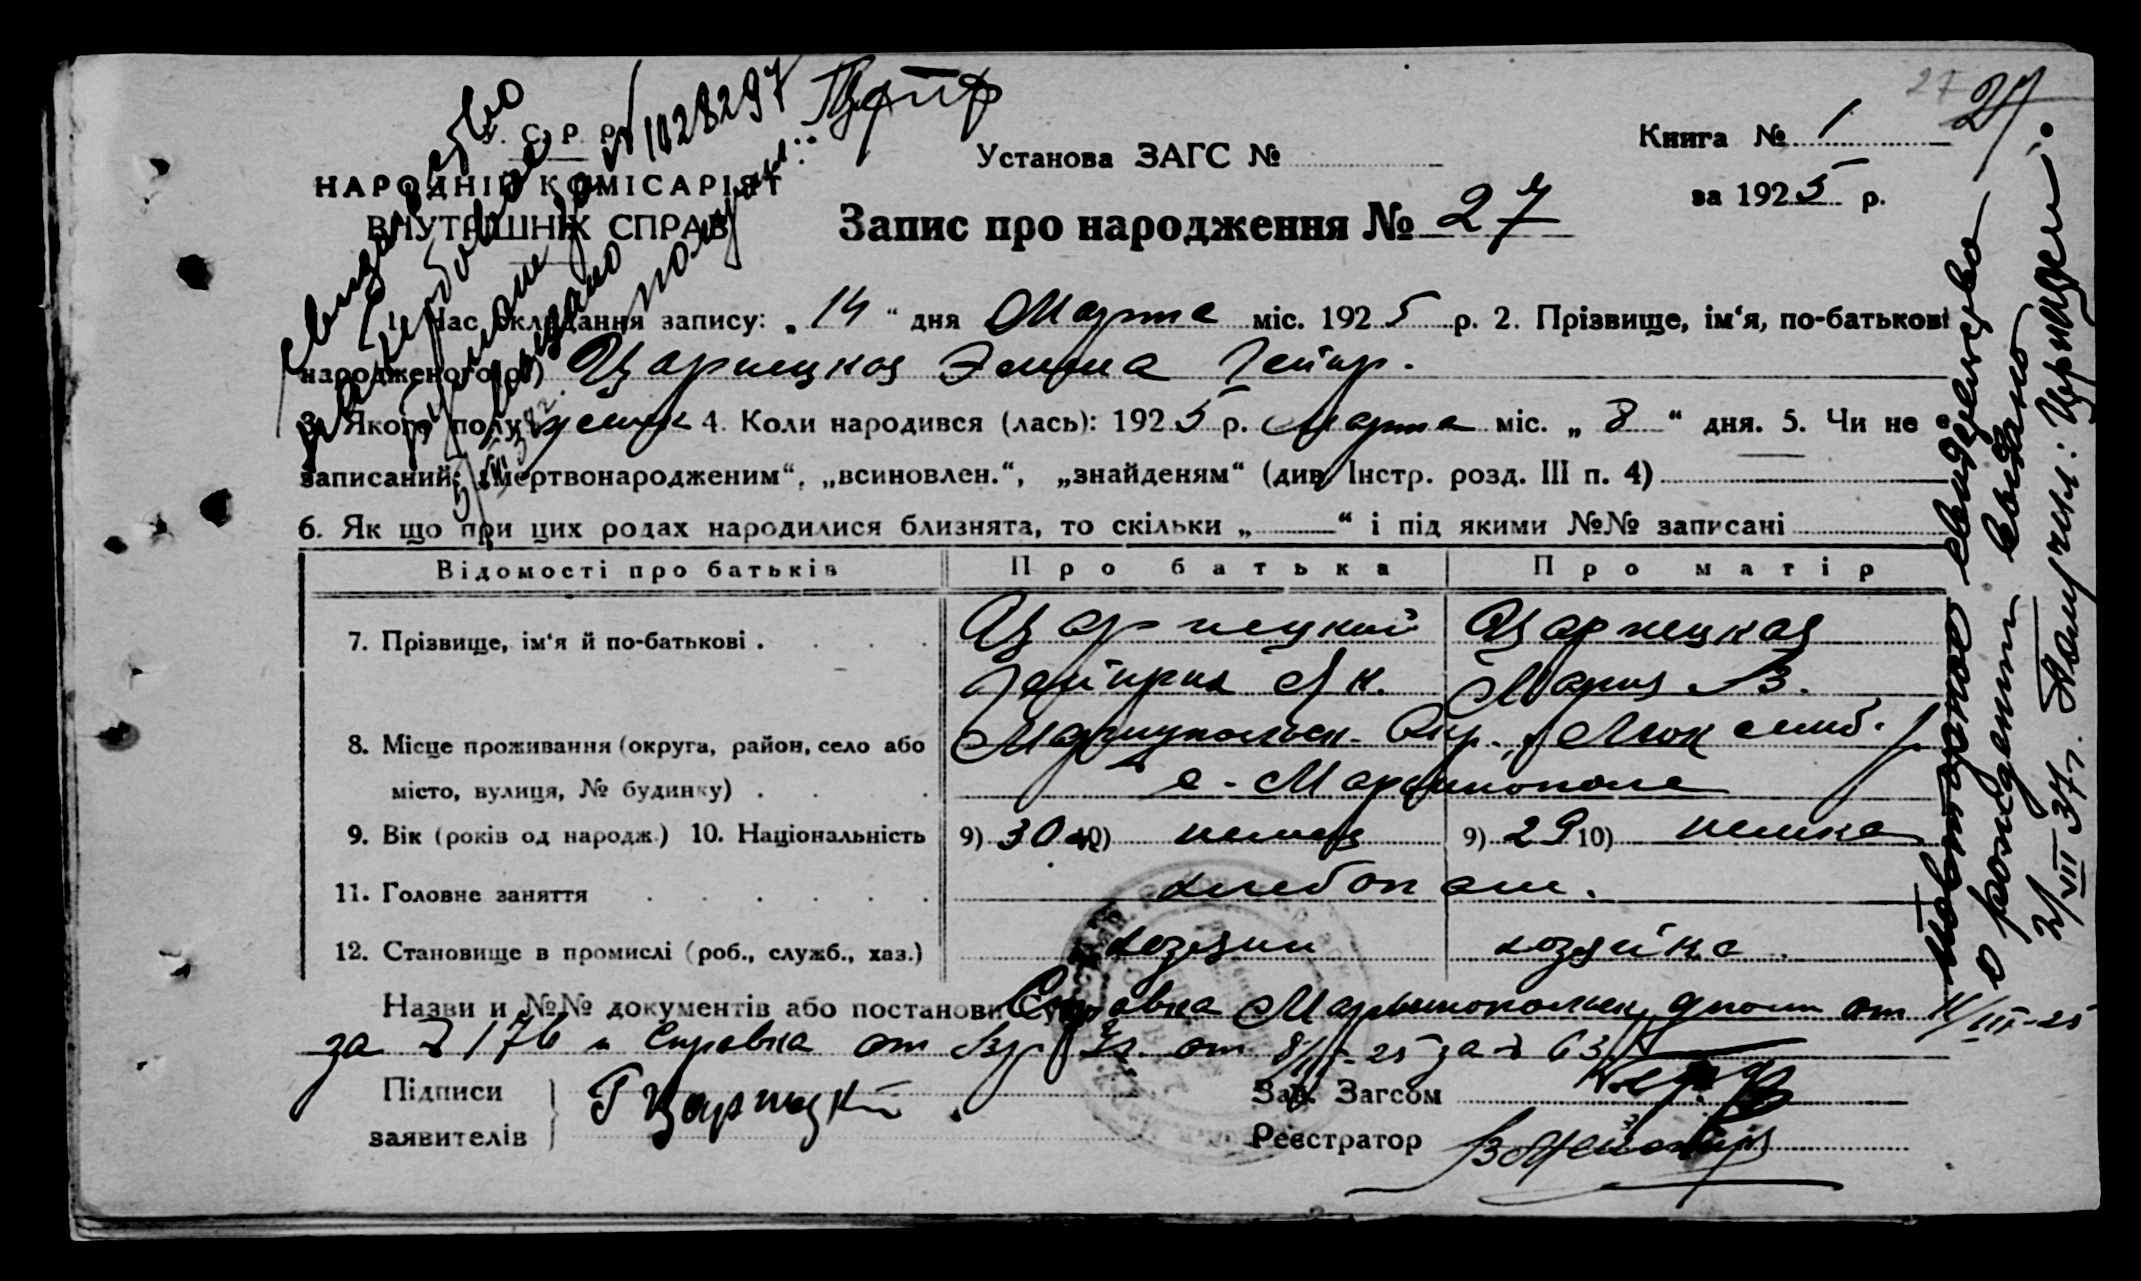 27 27
У. С. Р. Р.
НАРОДНІЙ КОМІСАРІЯТ
ВНУТРІШНІХ СПРАВ
Установа ЗАГС №
Книга № 1
за 1925 р.
Запис про народження № 27
1. Час складання запису: „14“ дня Марта міс. 1925 р. 2. Прізвище, ім‘я, по-батькові
народженого(ої) Царицкая Эмма Гейнр.
3. Якого полу женск 4. Коли народився (лась): 1925 р. Марта міс. „8“ дня. 5. Чи не є
записаний: „мертвонародженим“, „всиновлен.“, „знайденям“ (див. Інстр. розд. III п. 4)
6. Як що при цих родах народилися близнята, то скільки „ “ і під якими №№ записані
Відомості про батьків Про батька Про матір
7. Прізвище, ім‘я й по-батькові . Царицкий Царицкая
Гейнрих Як. Мария В.
8. Місце проживання (округа, район, село або Мариупольск. Окр., Люксемб.
місто, вулиця, № будинку) . с. Мариинополе
9. Вік (років од народж.) 10. Національність 9) 30 10) немец 9) 29 10) немка
11. Головне заняття хлебопаш.
12. Становище в промислі (роб., служб., хаз.) хозяин хозяйка
Назви и №№ документів або постанови Суду Справка Мариинопольск. от 11/III-25
за № 176 и справка от от 8/III-25 за № 63
Підписи Г Царицкий Зав. Загсом
заявителів Реєстратор
свидетельство
о рождении
выдано
№ 1028297
Получил:
повторное свидетельство
о рождении выдано
2/VIII 37 г. Получил: